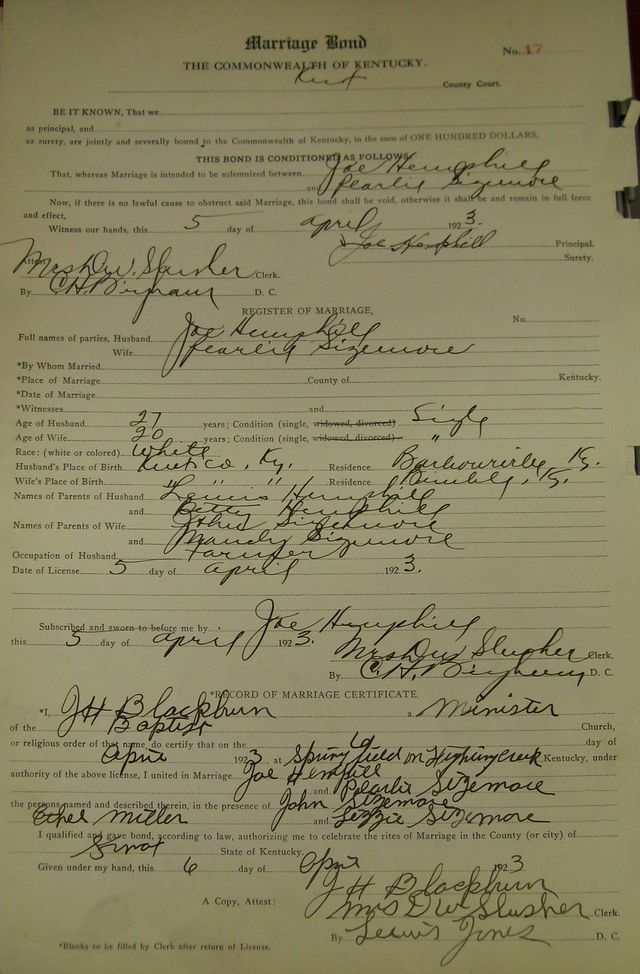 Marriage Bond
No. 17
THE COMMONWEALTH OF KENTUCKY.
County Court.
BE IT KNOWN, That we
as principal, and
as surety, are jointly and severally bound to the Commonwealth of Kentucky, in the sum of ONE HUNDRED DOLLARS.
THIS BOND IS CONDITIONED AS FOLLOWS:
That, whereas Marriage is intended to be solemnized between Joe Hemphill
and Pearlie Sizemore
Now, if there is no lawful cause to obstruct said Marriage, this bond shall be void, otherwise it shall be and remain in full force
and effect,
Witness our hands, this 5 day of April 1923.
Joe Hemphill Principal.
Surety.
Attest:
Mrs D.W. Slusher Clerk.
By C.H. D. C.
REGISTER OF MARRIAGE,
No.
Full names of parties, Husband Joe Hemphill
Wife Pearlie Sizemore
*By Whom Married
*Place of Marriage County of Kentucky.
*Date of Marriage
*Witnesses and
Age of Husband 27 years; Condition (single, widowed, divorced) Single
Age of Wife 20 years; Condition (single, widowed, divorced) "
Race: (white or colored) White
Husband's Place of Birth Knox Co. Ky. Residence Barbourville, Ky.
Wife's Place of Birth " " " Residence Bimble, Ky.
Names of Parents of Husband Hemphill
and Betty Hemphill
Names of Parents of Wife John Sizemore
and Mandy Sizemore
Occupation of Husband Farmer
Date of License 5 day of April 1923.
Subscribed and sworn to before me by Joe Hemphill
this 5 day of April 1923.
Mrs D.W. Slusher Clerk.
By C.H. D. C.
*RECORD OF MARRIAGE CERTIFICATE,
*I, J H Blackburn a Minister
of the Baptist Church,
or religious order of that name, do certify that on the 6 day of
April 1923, at Springfield on Creek Kentucky, under
authority of the above license, I united in Marriage Joe Hemphill
and Pearlie Sizemore
the persons named and described therein, in the presence of John Sizemore
Ethel Miller and Lizzie Sizemore
I qualified and gave bond, according to law, authorizing me to celebrate the rites of Marriage in the County (or city) of
Knox State of Kentucky.
Given under my hand, this 6 day of April 1923
J H Blackburn
A Copy, Attest: Mrs D W Slusher Clerk.
By Lewis Jones D. C.
*Blanks to be filled by Clerk after return of License.